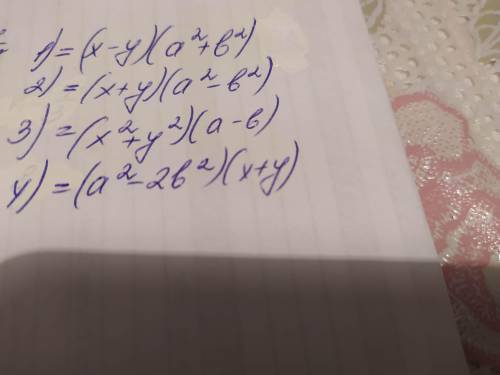 1) = (x-y)(a²+b²)
2) = (x+y)(a²-b²)
3) = (x²+y²)(a-b)
4) = (a²-2b²)(x+y)